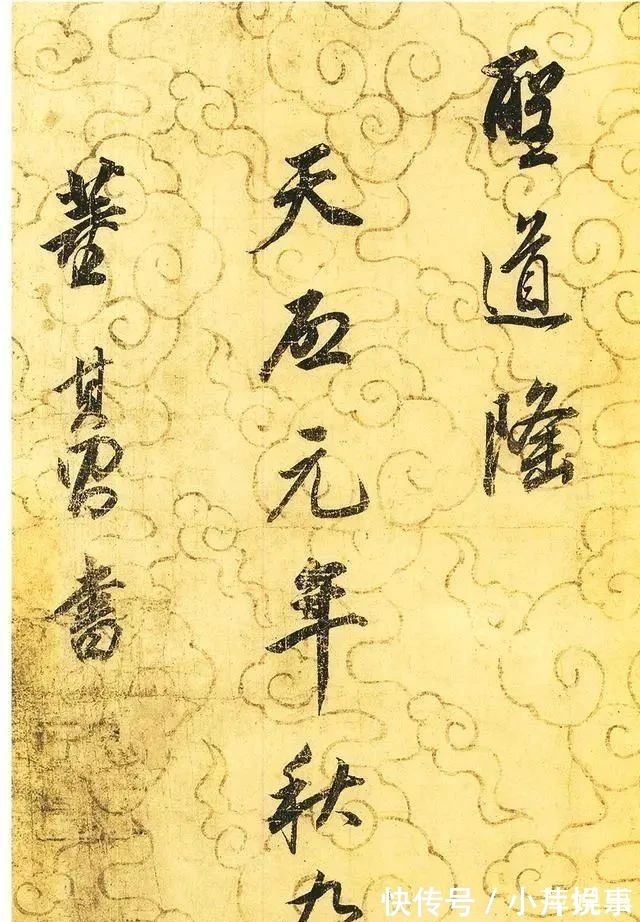 聖道隆
天啟元年秋九
董其昌書
快传号/小萍娱事